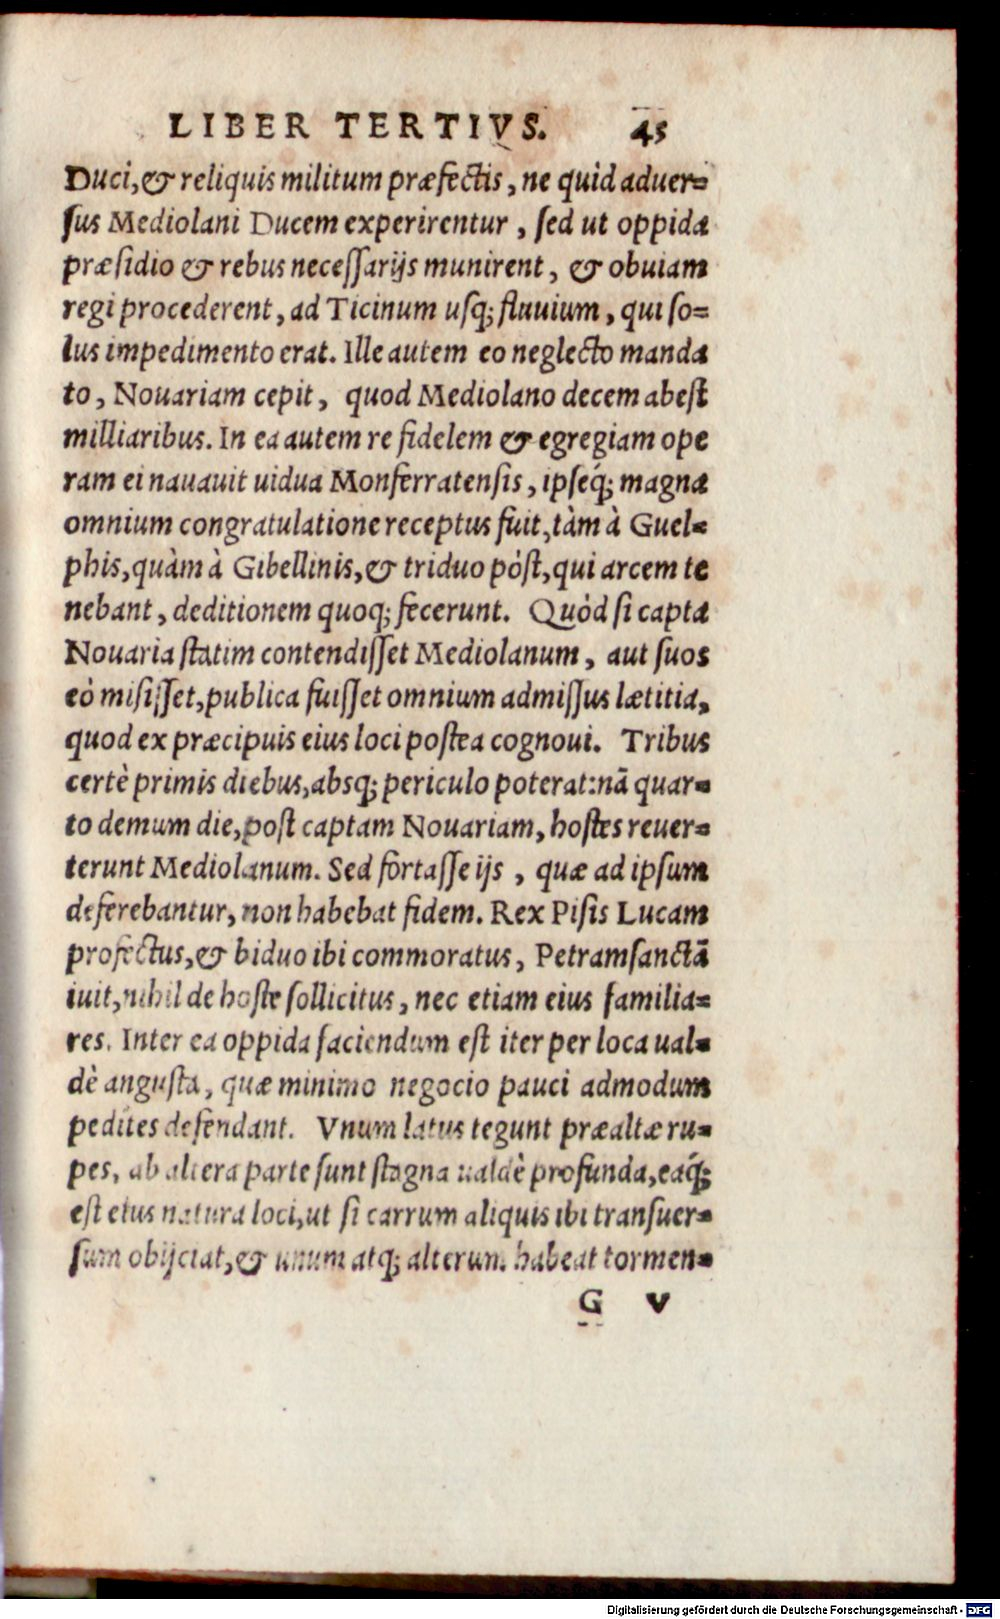 LIBER TERTIVS. 45
Duci, & reliquis militum præfectis, ne quid aduer=
sus Mediolani Ducem experirentur, sed ut oppida
præsidio & rebus necessarijs munirent, & obuiam
regi procederent, ad Ticinum usq; fluuium, qui so=
lus impedimento erat. Ille autem eo neglecto manda
to, Nouariam cepit, quod Mediolano decem abest
milliaribus. In ea autem re fidelem & egregiam ope
ram ei nauauit uidua Monferratensis, ipseq́; magna
omnium congratulatione receptus fuit, tàm à Guel=
phis, quàm à Gibellinis, & triduo pòst, qui arcem te
nebant, deditionem quoq; fecerunt. Quòd si capta
Nouaria statim contendisset Mediolanum, aut suos
eò misisset, publica fuisset omnium admissus lætitia,
quod ex præcipuis eius loci postea cognoui. Tribus
certè primis diebus, absq; periculo poterat: nã quar=
to demum die, post captam Nouariam, hostes reuer=
terunt Mediolanum. Sed fortasse ijs, quæ ad ipsum
deferebantur, non habebat fidem. Rex Pisis Lucam
profectus, & biduo ibi commoratus, Petramsanctã
iuit, nihil de hoste sollicitus, nec etiam eius familia=
res. Inter ea oppida faciendum est iter per loca ual=
dè angusta, quæ minimo negocio pauci admodum
pedites defendant. Vnum latus tegunt præaltæ ru=
pes, ab altera parte sunt stagna ualdè profunda, eaq́;
est eius natura loci, ut si carrum aliquis ibi transuer=
sum obijciat, & unum atq; alterum habeat tormen=
G v
Digitalisierung gefördert durch die Deutsche Forschungsgemeinschaft - DFG